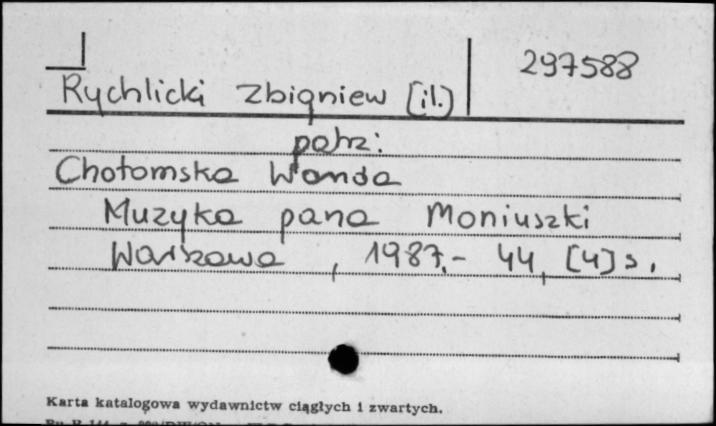 297588
Rychlicki Zbigniew [il.]
patrz:
Chotomska Wanda
Muzyka pana Moniuszki
Warszawa, 1987.- 44, [4] s.
Karta katalogowa wydawnictw ciągłych i zwartych.